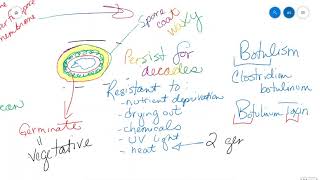 Spore
coat
waxy
membrane
Persist for
decades
Resistant to:
- nutrient deprivation
- drying out
- chemicals
- UV light
- heat
2 ger
Germinate
=
Vegetative
Botulism
Clostridium
botulinum
Botulinum Toxin